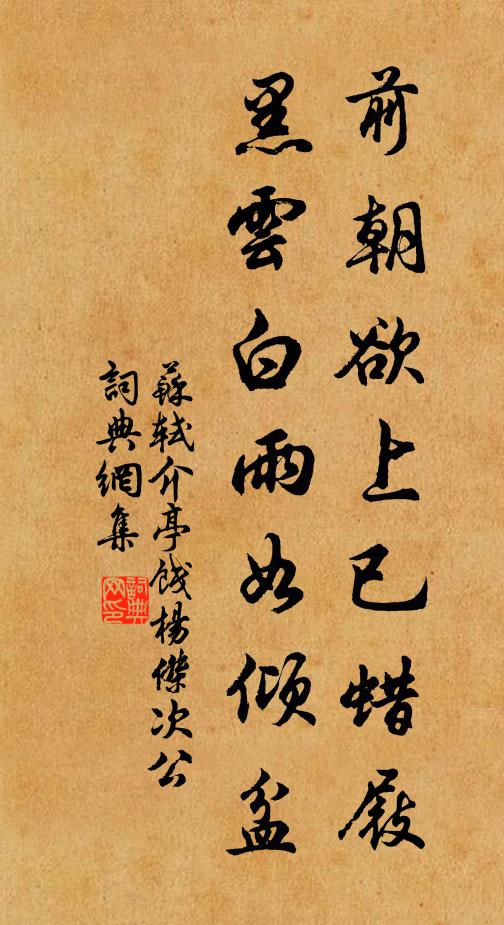 前朝欲上已蜡屐
黑雲白雨如傾盆
蘇軾介亭餞楊傑次公
詞典網集
詞典網印